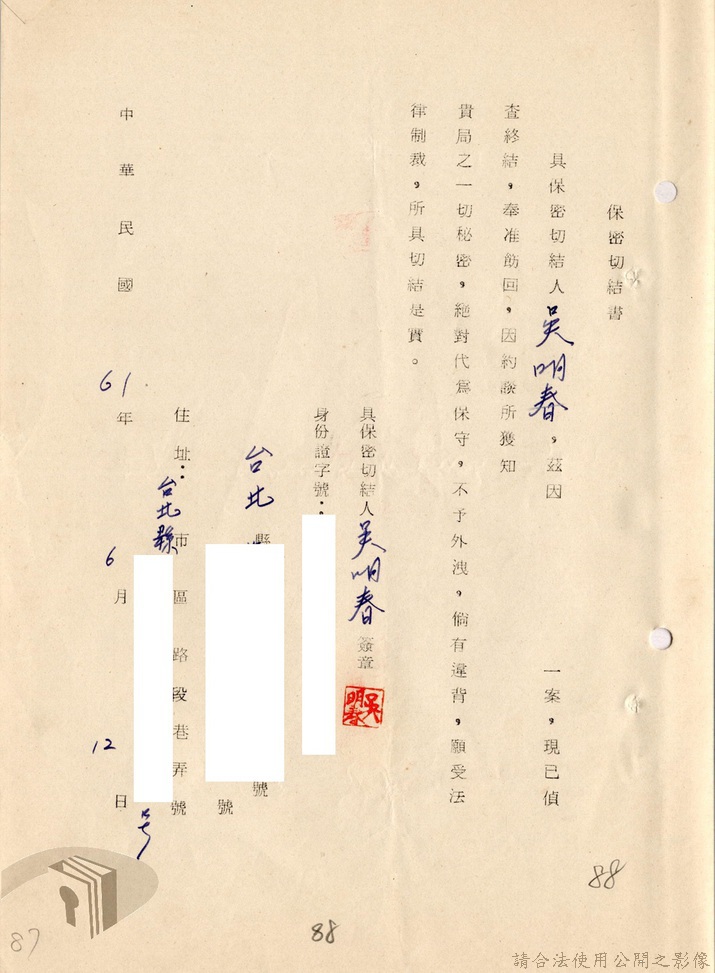 保密切結書
具保密切結人吳明春，茲因　　　一案，現已偵
查終結，奉准飭回，因約談所獲知
貴局之一切秘密，絕對代為保守，不予外洩，倘有違背，願受法
律制裁，所具切結是實。
具保密切結人吳明春簽章
吳明春
身份證字號：
台北　縣　號
號
住址：市區路段巷弄號
台北縣　号
中華民國61年6月12日
88
88
87
請合法使用公開之影像